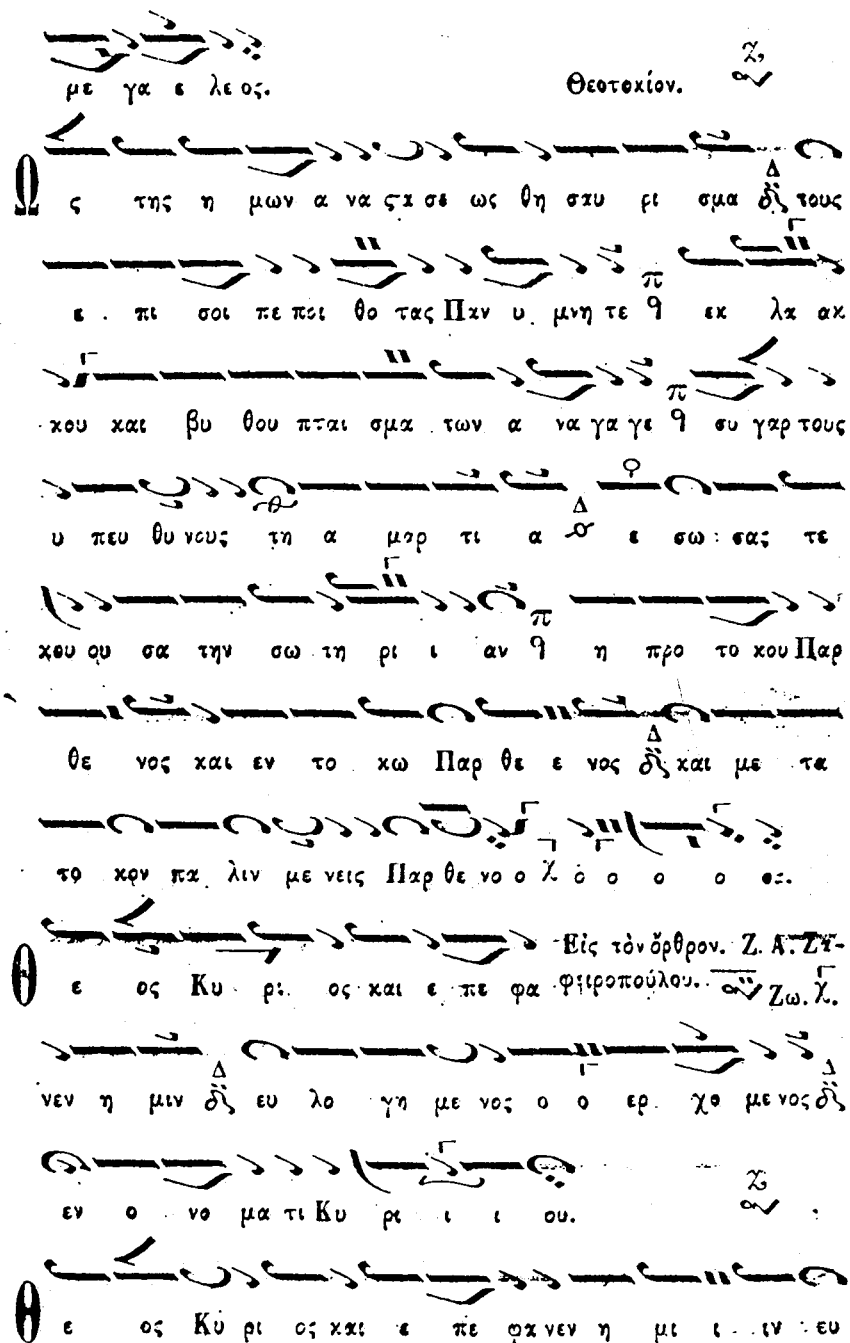 με γα ε λε ος. Θεοτοκίον.
Ω ς της η μων α να ϛα σε ως θη σαυ ρι σμα τους
ε πι σοι πε ποι θο τας Παν υ μνη τε εκ λα ακ
κου και βυ θου πται σμα των α να γα γε συ γαρ τους
υ πευ θυ νους τη α μαρ τι α ε σω σας τε
κου ου σα την σω τη ρι ι αν η προ το κου Παρ
θε νος και εν το κω Παρ θε ε νος και με τα
το κον πα λιν με νεις Παρ θε νο ο ο ο ο ο ος.
Θ ε ος Κυ ρι ος και ε πε φα Εἰς τὸν ὄρθρον. Ζ. Α. Ζα-
φειροπούλου. Ζω.
νεν η μιν ευ λο γη με νος ο ο ερ χο με νος
εν ο νο μα τι Κυ ρι ι ι ου.
Θ ε ος Κυ ρι ος και ε πε φα νεν η μι ι ιν ευ